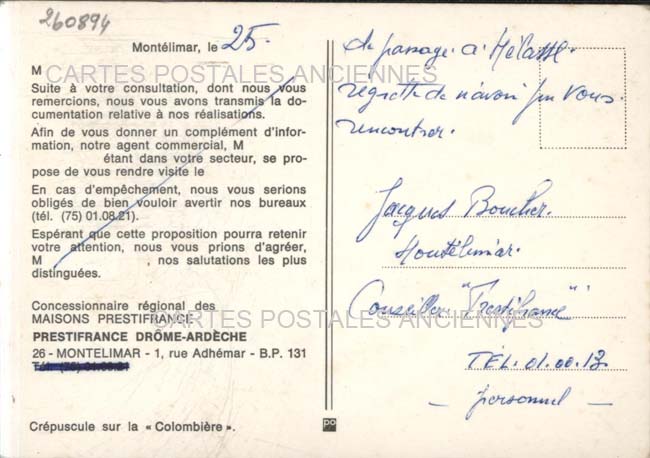 260894
Montélimar, le 25-
M
CARTES POSTALES ANCIENNES
Suite à votre consultation, dont nous vous
remercions, nous vous avons transmis la do-
cumentation relative à nos réalisations.
Afin de vous donner un complément d'infor-
mation, notre agent commercial, M
étant dans votre secteur, se pro-
pose de vous rendre visite le
En cas d'empêchement, nous vous serions
obligés de bien vouloir avertir nos bureaux
(tél. (75) 01.08.21).
Espérant que cette proposition pourra retenir
votre attention, nous vous prions d'agréer,
M , nos salutations les plus
distinguées.
Concessionnaire régional des
MAISONS PRESTIFRANCE
CARTES POSTALES ANCIENNES
PRESTIFRANCE DRÔME-ARDÈCHE
26 - MONTELIMAR - 1, rue Adhémar - B.P. 131
Tél. (75) 01.08.21
Crépuscule sur la « Colombière ».
de passage a
regrette de n'avoir pu vous.
rencontrer.
Jacques Boucher.
Montélimar.
Conseiller "Prestifrance"
TÉL. 01.00.13
- personnel -
po